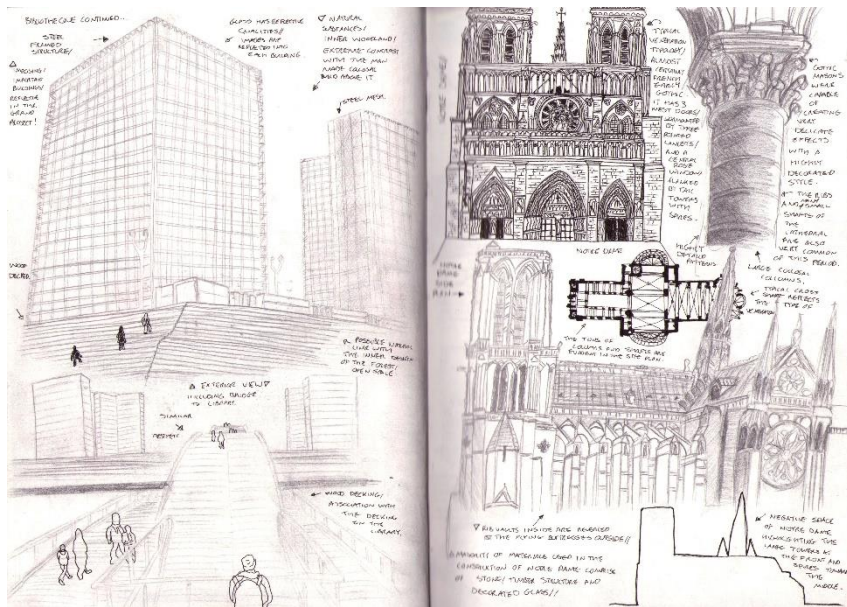 BIBLIOTHEQUE CONTINUED..
STEEL
FRAMED
STRUCTURE/
IMPOSING/
BUILDINGS/
REFLECTIVE
IN THE
GRAND
PROJECT!
GLASS HAS REFLECTIVE
QUALITIES//
IMAGES ARE
REFLECTED INTO
EACH BUILDING
NATURAL
SUBSTANCES/
INNER WOODLAND/
EXTREME CONTRAST
WITH THE MAN
MADE COLOSSAL
BUILD ABOVE IT
STEEL MESH
WOOD
DECKED
POSSIBLE NATURAL
LINK WITH
THE INNER
OF THE FOREST/
EXTERIOR VIEW
INCLUDING BRIDGE
TO LIBRARY
SIMILAR
WOOD DECKING/
ASSOCIATION WITH
THE DECKING
ON THE
LIBRARY.
NOTRE DAME/
TYPICAL
VENERATION
TYPOLOGY/
ALMOST
CERTAINLY
FRENCH
EARLY
GOTHIC
IT HAS 3
WEST DOORS/
SURMOUNTED
BY THREE
LANCETS/
AND A
CENTRAL
ROSE
WINDOW
FLANKED
BY TALL
TOWERS
WITH
SPIRES.
GOTHIC
MASONS
WERE
CAPABLE
OF
CREATING
VERY
DELICATE
EFFECTS
WITH A
HIGHLY
DECORATED
STYLE.
THE RIBS
AND SMALL
SHAFTS OF
THE
CATHEDRAL
ARE ALSO
VERY COMMON
OF THIS PERIOD.
HIGHLY
DETAILED
PATTERNS
LARGE COLOSSAL
COLUMNS.
NOTRE DAME
NOTRE
DAME
SIDE
PLAN
TYPICAL CROSS
SHAPE REFLECTS
THIS TYPE OF
VENERATION
THE TONS OF
COLUMNS AND SHAFTS ARE
EVIDENT IN THE SIDE
PLAN.
RIB VAULTS INSIDE ARE REVEALED
BY THE FLYING BUTTRESSES OUTSIDE//
MAJORITY OF MATERIALS USED IN THE
CONSTRUCTION OF NOTRE DAME COMPRISE
OF STONE/ TIMBER STRUCTURE AND
DECORATED GLASS//
NEGATIVE SPACE
OF NOTRE DAME
HIGHLIGHTING THE
LARGE TOWERS AT
THE FRONT AND
SPIRES TOWARD
THE
MIDDLE.